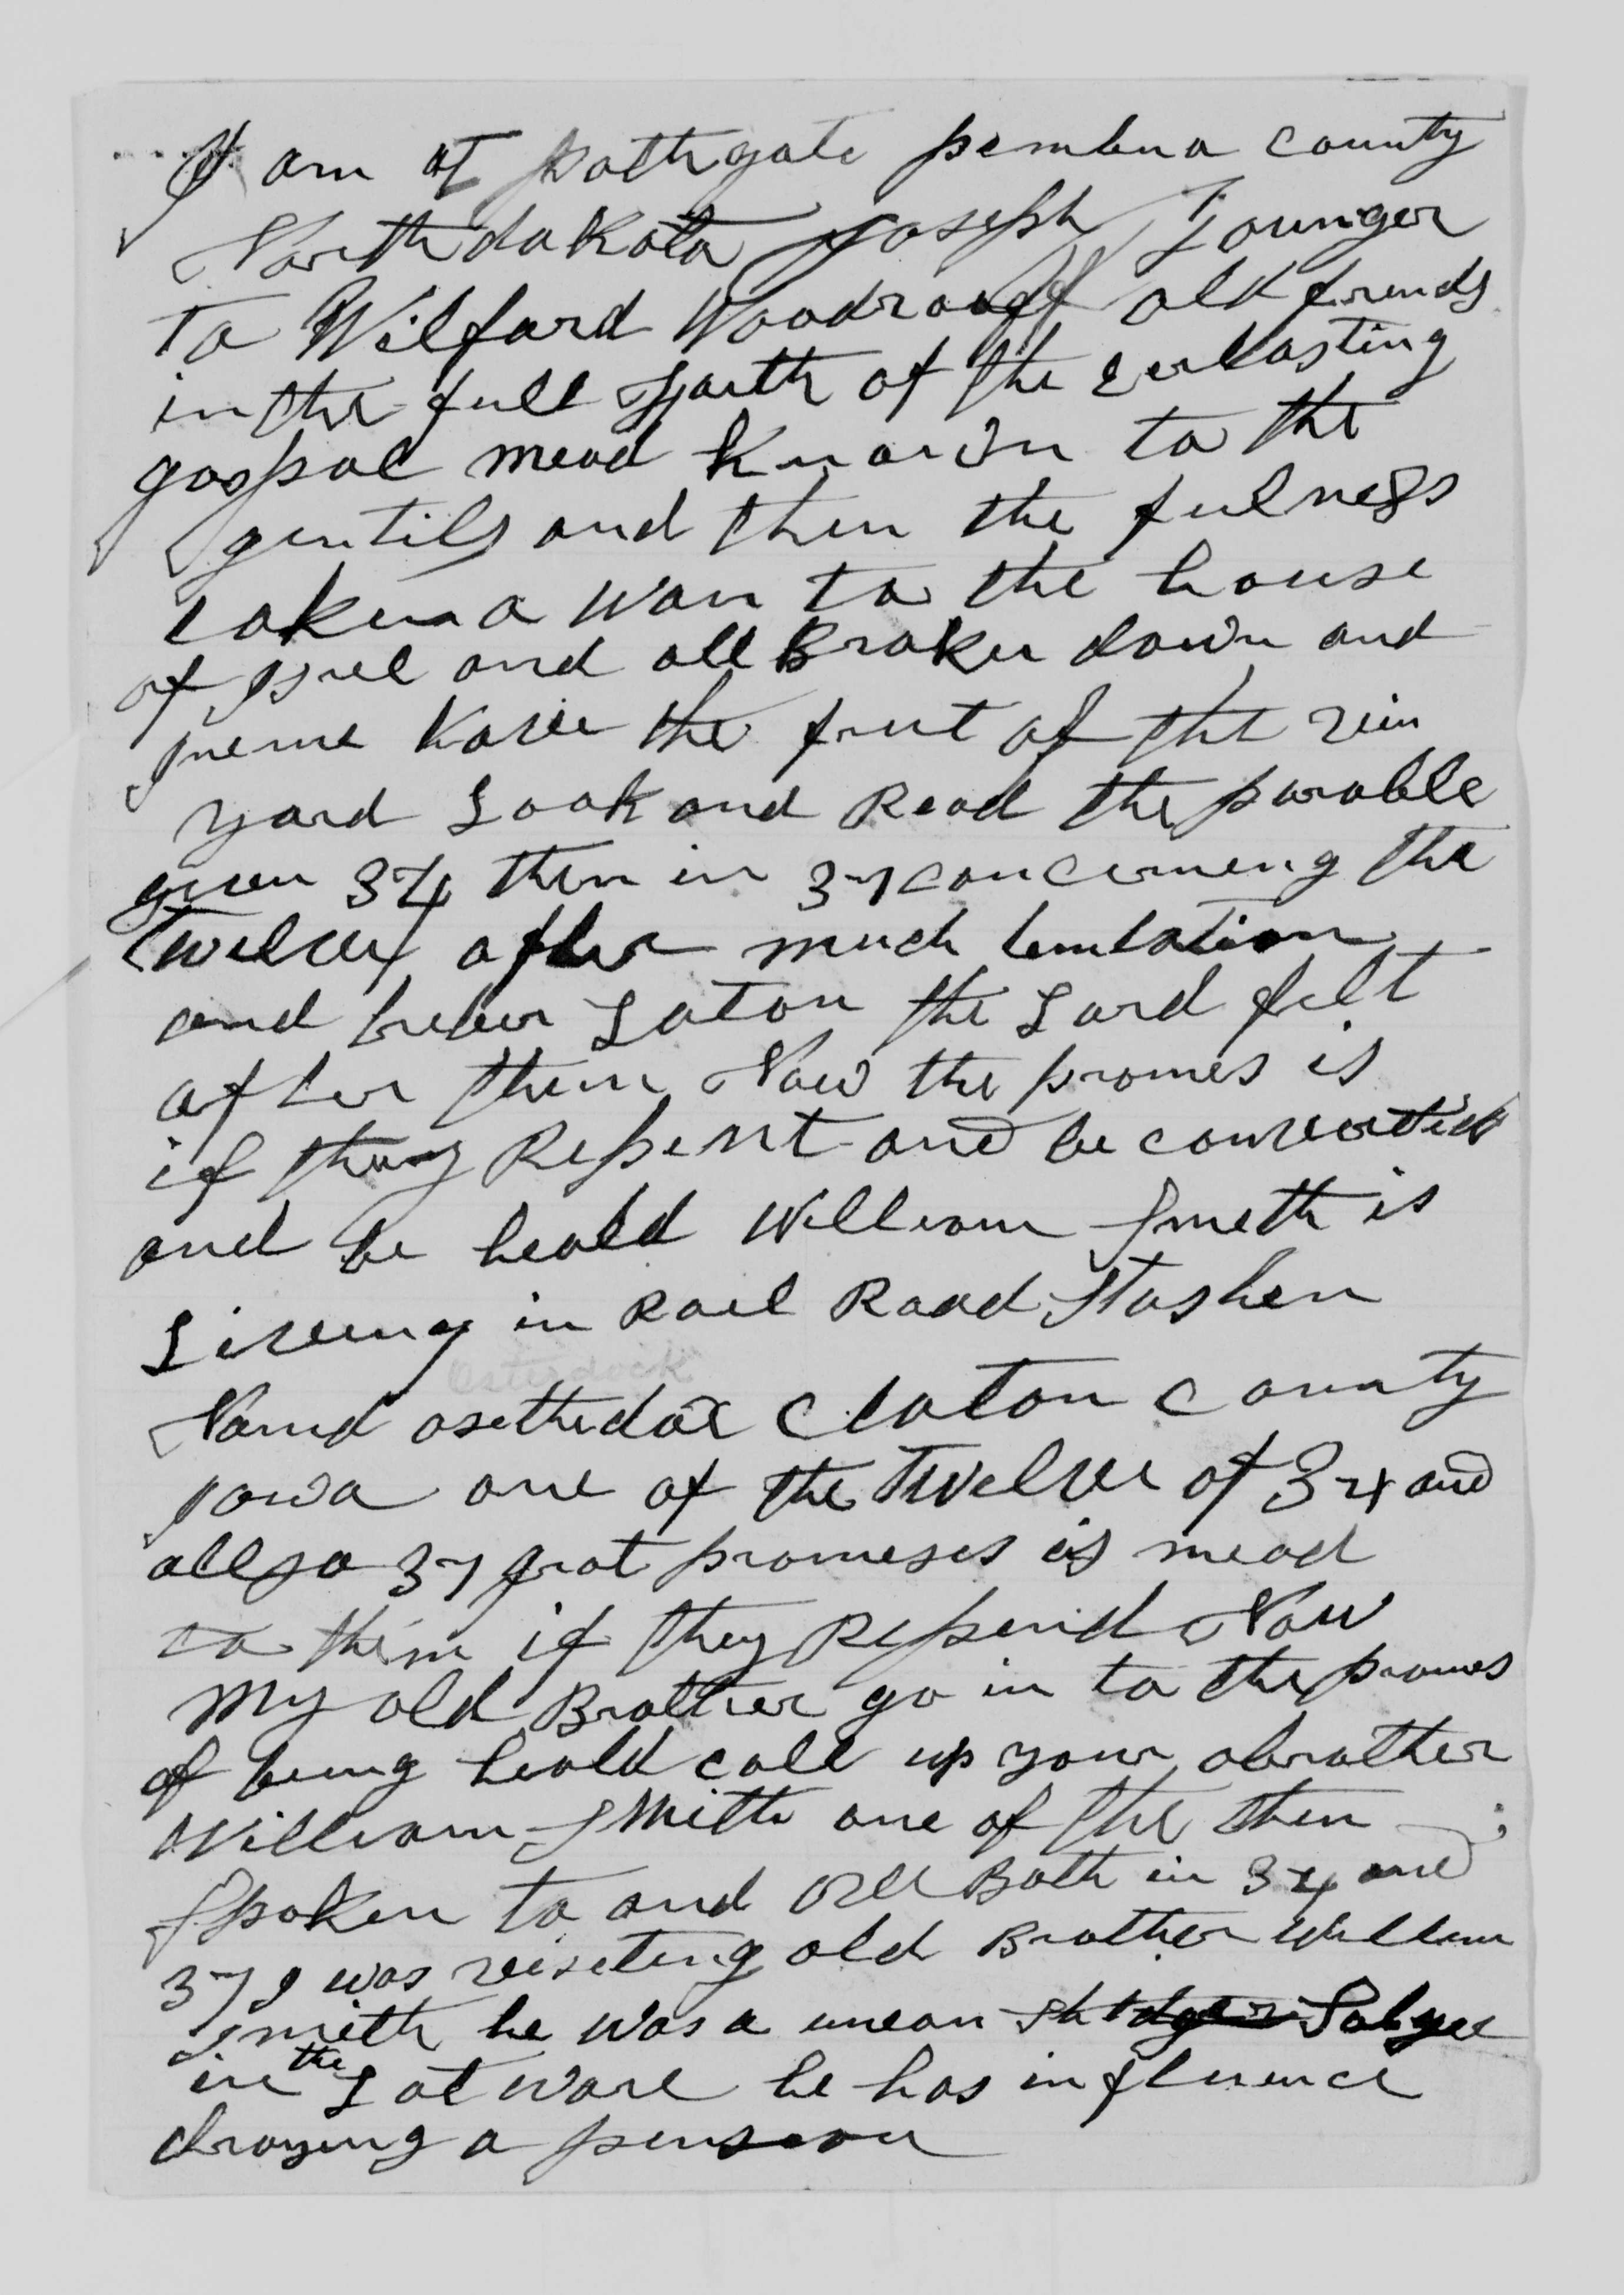 I am at pathgate pembina county
North dakota Joseph Younger
to Wilford Woodroof old frends
in the full faith of the Everlasting
gospel mead known to the
gentils and then the fulness
taken a way to the house
of Isrel and all Broken down and
none have the frut of the vin
yard Look and Read the parable
given 34 then in 37 concerneng the
twelve after much temtation
and trebu Laton the Lord felt
after them Now the promes is
if they Repent and be converted
and be heald William Smeth is
Liveing in Rail Road Stashen
Osterdock
Namd osethedoc Claton County
Iowa one of the Twelve of 34 and
allso 37 grat promeses is mead
to them if they Repend Now
My old Brother go in to the promes
of being heald call up your obrother
William Smith one of the then
Spoken to and all Both in 34 and
37 I was viseting old Brother Willem
Smith he was a unean Solger
in the Lat ware he has influence
drawing a penson